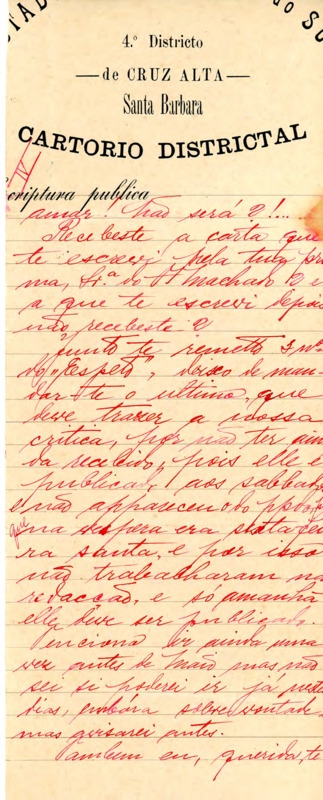 STAD do SU
4.º Districto
de CRUZ ALTA
Santa Barbara
CARTORIO DISTRICTAL
IV
criptura publica
amar! Não será?!...
Recebeste a carta que
te escrevi pela tua pri
ma, Fª do Machado? e
a que te escrevi depois
não recebeste?
Junto te remetto 3 nos
do "Espeto", deixo de man
dar-te o ultimo, que
deve trazer a vossa
critica, por não ter ain
da recebido, pois elle é
publicado aos sabbados
e não appareceu o do pp.
que na vespera era sexta fei
ra santa, e por isso
não trabalharam na
redacção, e só amanhã
elle deve ser publicado.
Tenciono ir ainda uma
vez antes de Maio mas não
sei si poderei ir já nestes
dias, embora sobre vontade
mas avisarei antes.
Tambem eu, querida, te